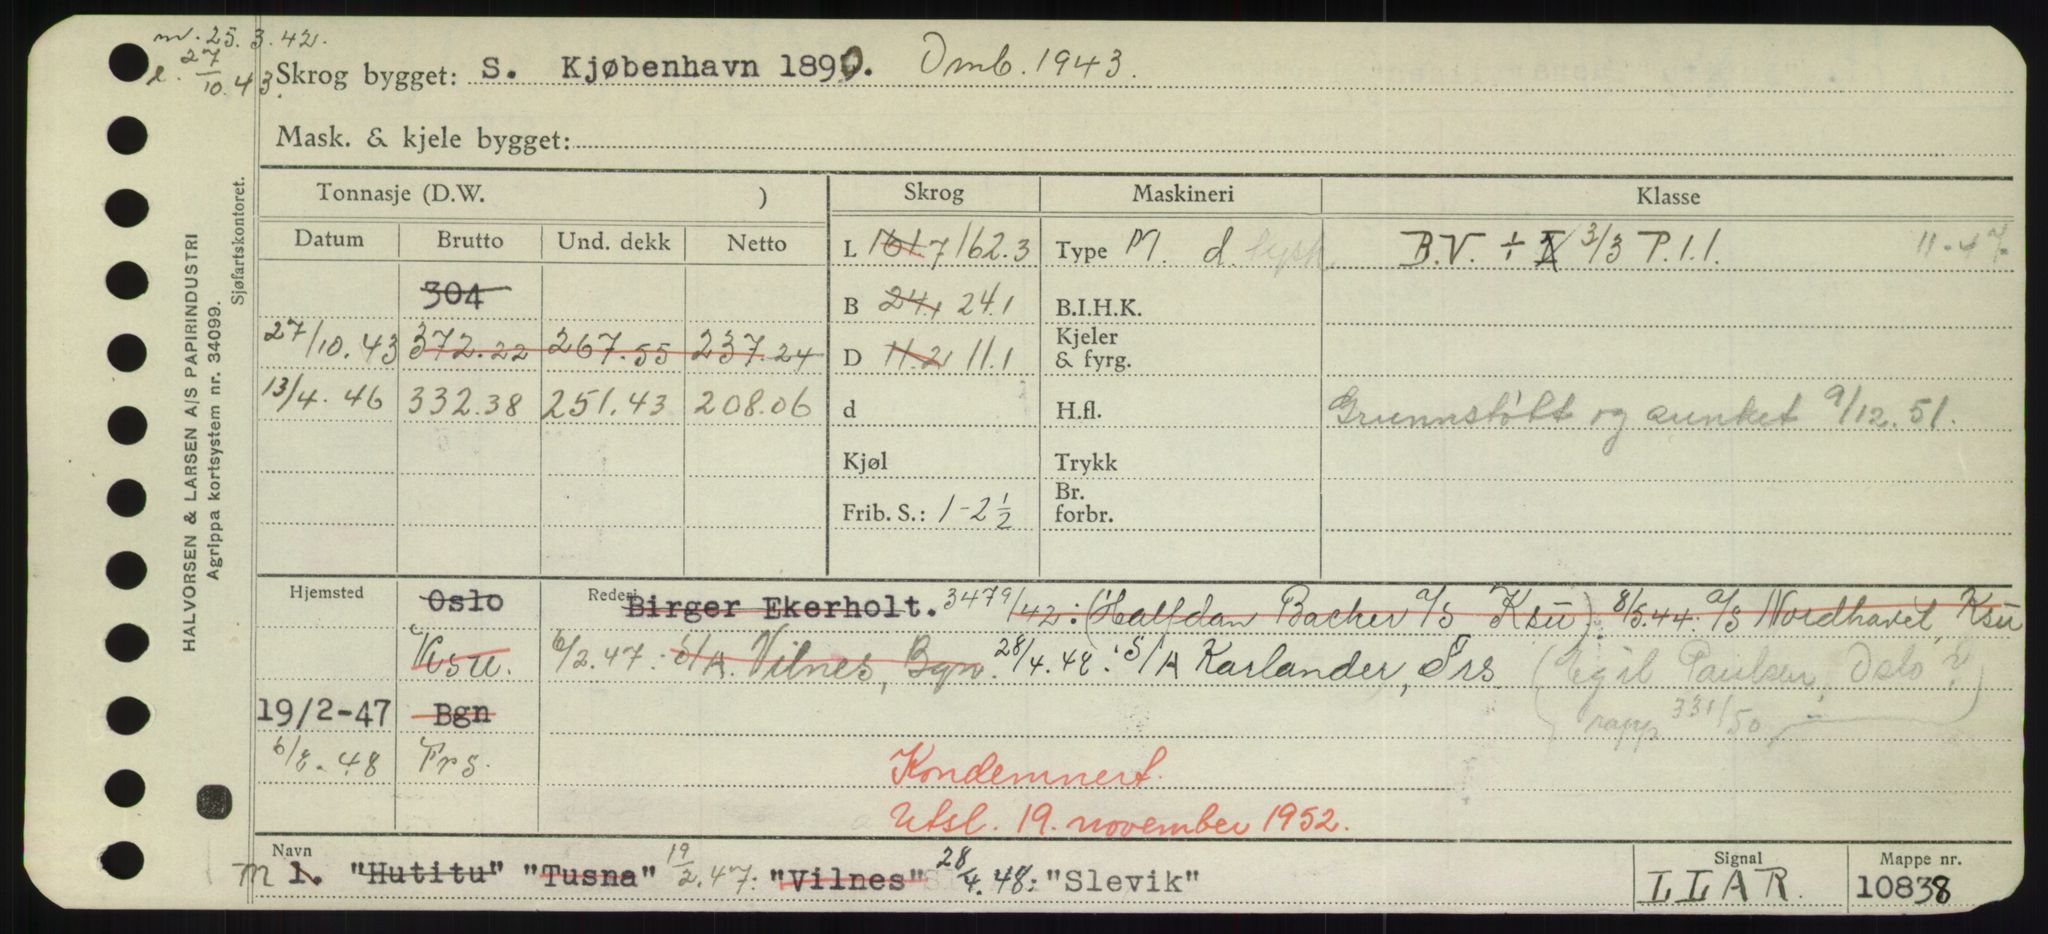 m. 25.3.42.
l. 27/10.43.
Skrog bygget: S. Kjøbenhavn 1890. Omb. 1943.
Mask. & kjele bygget:
Tonnasje (D.W. ) Skrog Maskineri Klasse
Datum Brutto Und. dekk Netto L 161.7 162.3 Type M. d B.V. ÷ I 3/3 P.1.1. 11-47
304 B 24.1 24.1 B.I.H.K.
27/10.43 372.22 267.55 237.24 D 11.2 11.1 Kjeler & fyrg.
13/4.46 332.38 251.43 208.06 d H.fl. Grunnstøtt og sunket 9/12.51.
Kjøl Trykk
Frib. S.: 1-2 1/2 Br. forbr.
Hjemsted Oslo Rederi Birger Ekerholt. 347 9/42: (Halfdan Backer A/S Ksu). 8/5.44. A/S Nordhavet, Ksu
Ksu. 6/2.47. S/A. Vilnes, Bgn. 28/4.48: S/A Karlander, Frs (Egil Paulsen, Oslo?
19/2-47 Bgn rapp 331/50)
6/8.48 Frs.
Kondemnert.
Utsl. 19. november 1952.
Navn Signal Mappe nr.
M 1. "Hutitu" "Tusna" 19/2.47: "Vilnes" 28/4.48: "Slevik" LLAR. 10838
HALVORSEN & LARSEN A/S PAPIRINDUSTRI
Agrippa kortsystem nr. 34099.
Sjøfartskontoret.